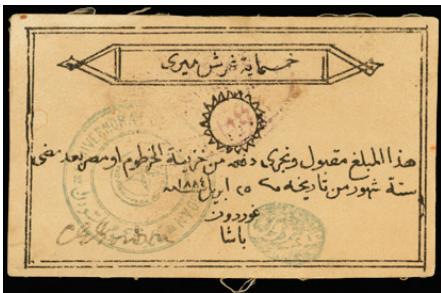 خمسماية غرش ميرى
هذا المبلغ مقبول ونجرى دفعه من خزينة الخرطوم او مصر بعد مضى
ستة شهور من تاريخه ٢٥ ابريل ١٨٨٤
غوردون
باشا